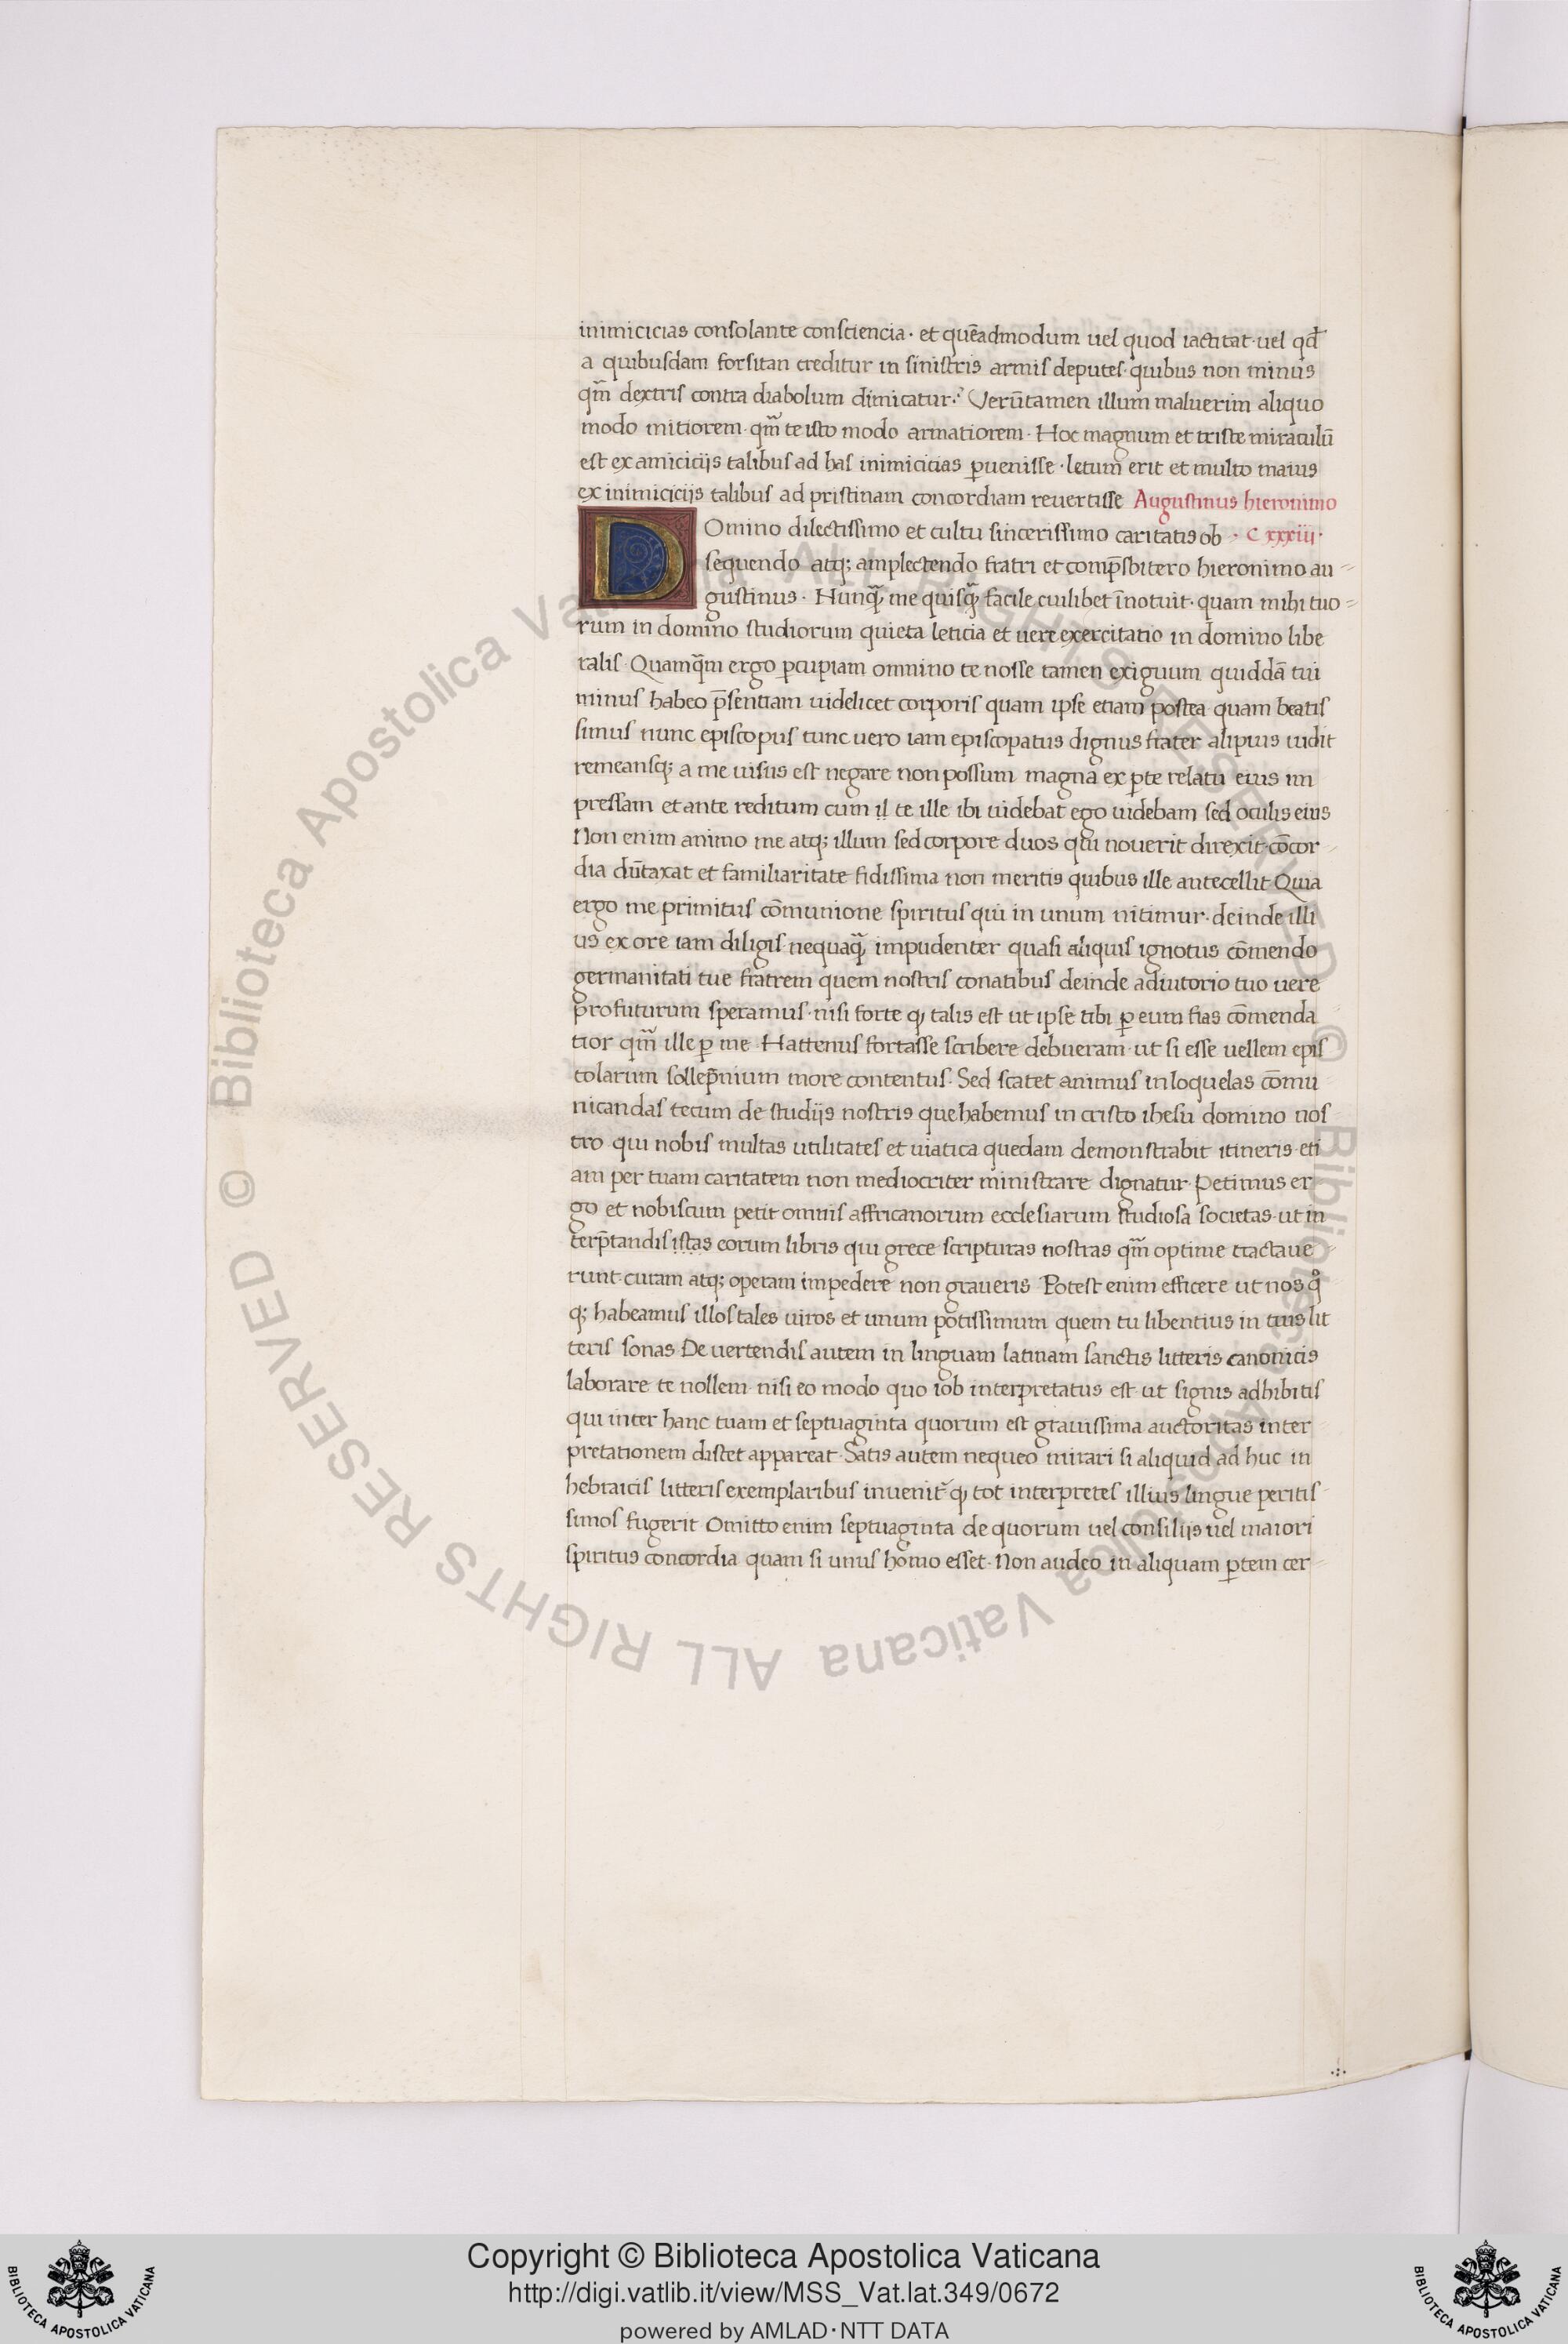 inimicicias consolante consciencia · et quēadmodum uel quod iactitat · uel qđ
a quibusdam forsitan creditur in sinistris armis deputes · quibus non minus
qm̄ dextris contra diabolum dimicatur · Verūtamen illum maluerim aliquo
modo mitiorem · qm̄ te isto modo armatiorem · Hoc magnum et triste miraculū
est ex amicicijs talibus ad has inimicicias ꝑuenisse · letum erit et multo maius
ex inimicicijs talibus ad pristinam concordiam reuertisse Augustinus hieronimo
DOmino dilectissimo et cultu sincerissimo caritatis ob · C xxxiii ·
sequendo atq; amplectendo fratri et comp̄sbitero hieronimo au
gustinus · Nunqꝫ me quisqꝫ facile cuilibet īnotuit · quam mihi tuo
rum in domino studiorum quieta leticia et uere exercitatio in domino libe
ralis · Quamq̄m ergo ꝑcupiam omnino te nosse tamen exiguum quiddā tui
minus habeo p̄sentiam uidelicet corporis quam ipse etiam postea quam beatis
simus nunc episcopus tunc uero iam episcopatus dignus frater alipius uidit
remeansq; a me uisus est negare non possum magna ex ꝑte relatu eius im
pressam et ante reditum cum il te ille ibi uidebat ego uidebam sed oculis eius
Non enim animo me atq; illum sed corpore duos qui nouerit direxit · cōcor
dia dūtaxat et familiaritate fidissima non meritis quibus ille antecellit · Quia
ergo me primitus cōmunione spiritus qui in unum nitimur · deinde illi
us ex ore iam diligis nequaqꝫ impudenter quasi aliquis ignotus cōmendo
germanitati tue fratrem quem nostris conatibus deinde adiutorio tuo uere
profuturum speramus · nisi forte ꝙ talis est ut ipse tibi ꝑ eum fias cōmenda
tior qm̄ ille ꝑ me Hattenus fortasse scribere debueram · ut si esse uellem epis
tolarum sollep̄nium more contentus · Sed scatet animus in loquelas cōmu
nicandas tecum de studijs nostris que habemus in cristo ihesu domino nos
tro qui nobis multas utilitates et uiatica quedam demonstrabit itineris · eti
am per tuam caritatem non mediocriter ministrare dignatur · Petimus er
go et nobiscum petit omnis affricanorum ecclesiarum studiosa societas · ut in
terp̄tandis istas eorum libris qui grece scripturas nostras qm̄ optime tractaue
runt · curam atq; operam impedere non graueris Potest enim efficere ut nos qͦ
q; habeamus illos tales uiros et unum potissimum quem tu libentius in tuis lit
teris sonas De uertendis autem in linguam latinam sanctis litteris canonicis
laborare te nollem · nisi eo modo quo iob interpretatus est · ut signis adhibitis
qui inter hanc tuam et septuaginta quorum est grauissima auctoritas inter
pretationem distet appareat · Satis autem nequeo mirari si aliquid ad huc in
hebraicis litteris exemplaribus inuenit᷑ ꝙ tot interpretes illius lingue peritis
simos fugerit Omitto enim septuaginta de quorum uel consilijs uel maiori
spiritus concordia quam si unus homo esset · Non audeo in aliquam ꝑtem cer
© Biblioteca Apostolica Vaticana ALL RIGHTS RESERVED © Biblioteca Apostolica Vaticana ALL RIGHTS RESERVED
BIBLIOTECA APOSTOLICA VATICANA
Copyright © Biblioteca Apostolica Vaticana
http://digi.vatlib.it/view/MSS_Vat.lat.349/0672
powered by AMLAD·NTT DATA
BIBLIOTECA APOSTOLICA VATICANA